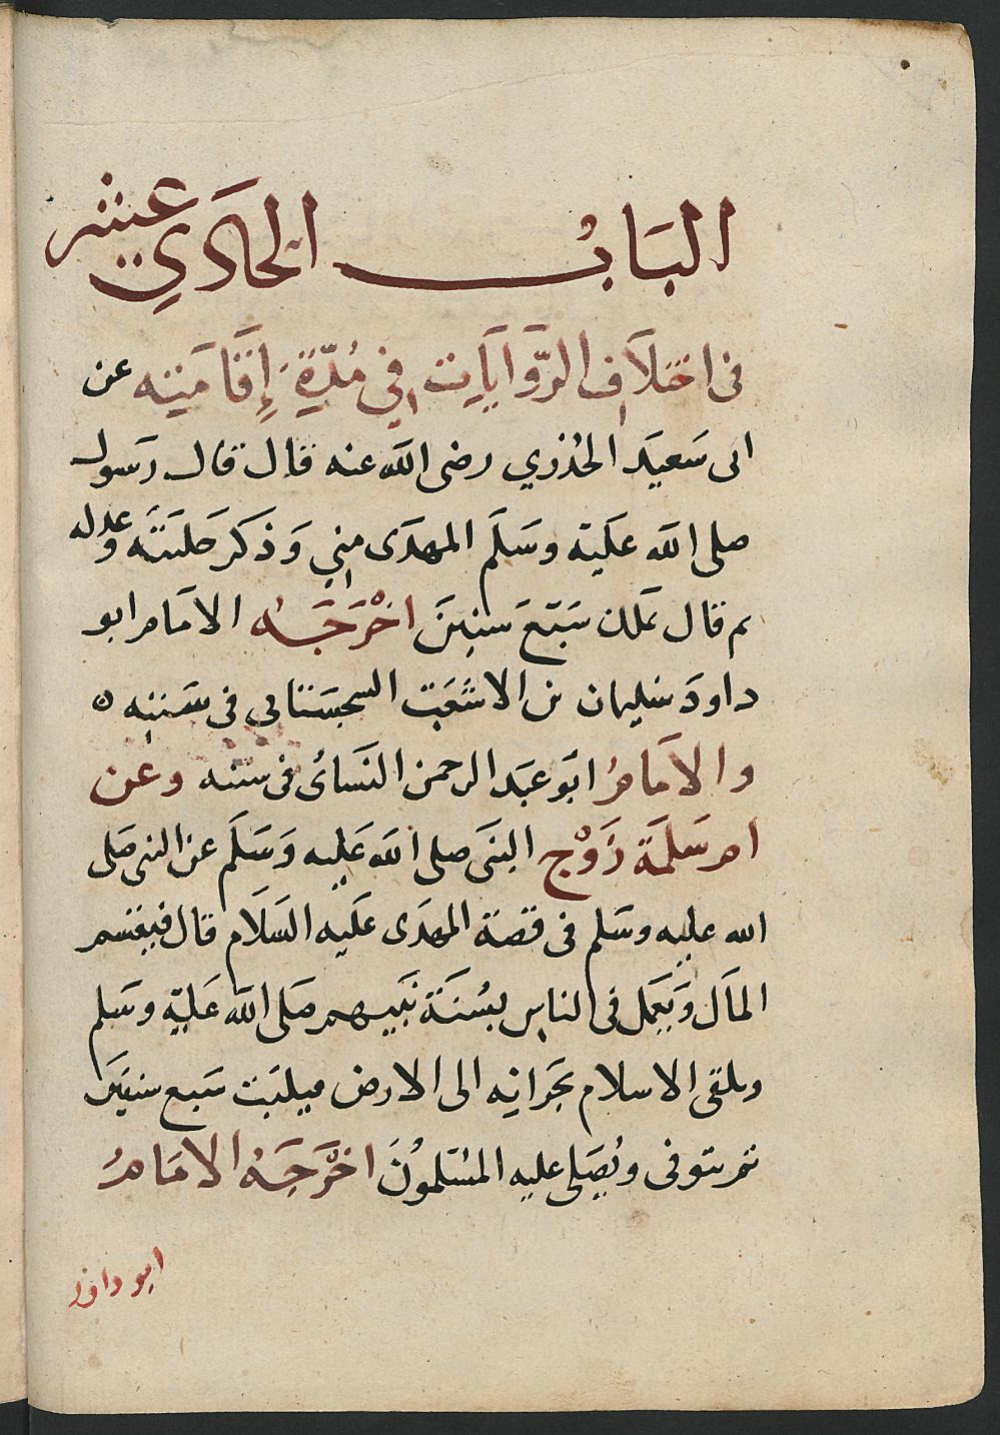 البَابُ الحَادِي عشر
في اختلاف الرّوَايَاتِ في مُدّةِ إقَامَتِه عن
ابى سَعيد الخُذري رضى الله عنه قال قال رَسول
صلى الله عَليه وسَلَم المهدَى مِني وَذكر حليَتَه وعدله
ثم قال يملك سَبْعَ سنِينَ اخْرَجَهُ الامَام ابو
داودَ سليمان بن الاشعَث السجسَتناني في سَننِه ٥
والامَامُ ابَو عبَد الرحمن النسَائ في سننه وعن
ام سَلمَة زَوْج النبَى صلى الله عَليه وَسَلَم عن النبى صَلى
الله عليه وسَلم فى قصة المهدَى عَليه السَلام قال فيقسم
المَال وَيَعمَل فى الناس بسُنَة نَبيهم صَلى الله عَليه وسَلم
ويلقى الاسلام بجَرانِه الى الارض فيلبَث سَبع سنيَن
ثم يتوفى ويُصَلى عليه المسُلمُونَ اخْرَجَهُ الامَامُ
ابو داود